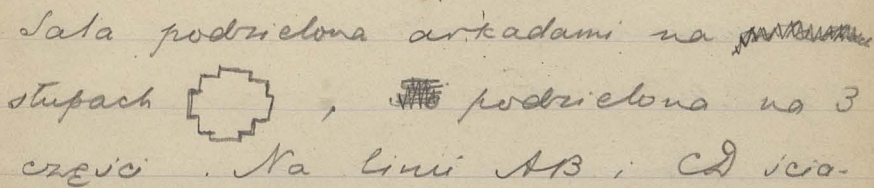 Sala podzielona arkadami na
słupach , podzielona na 3
części . Na linii AB i CD ścia-